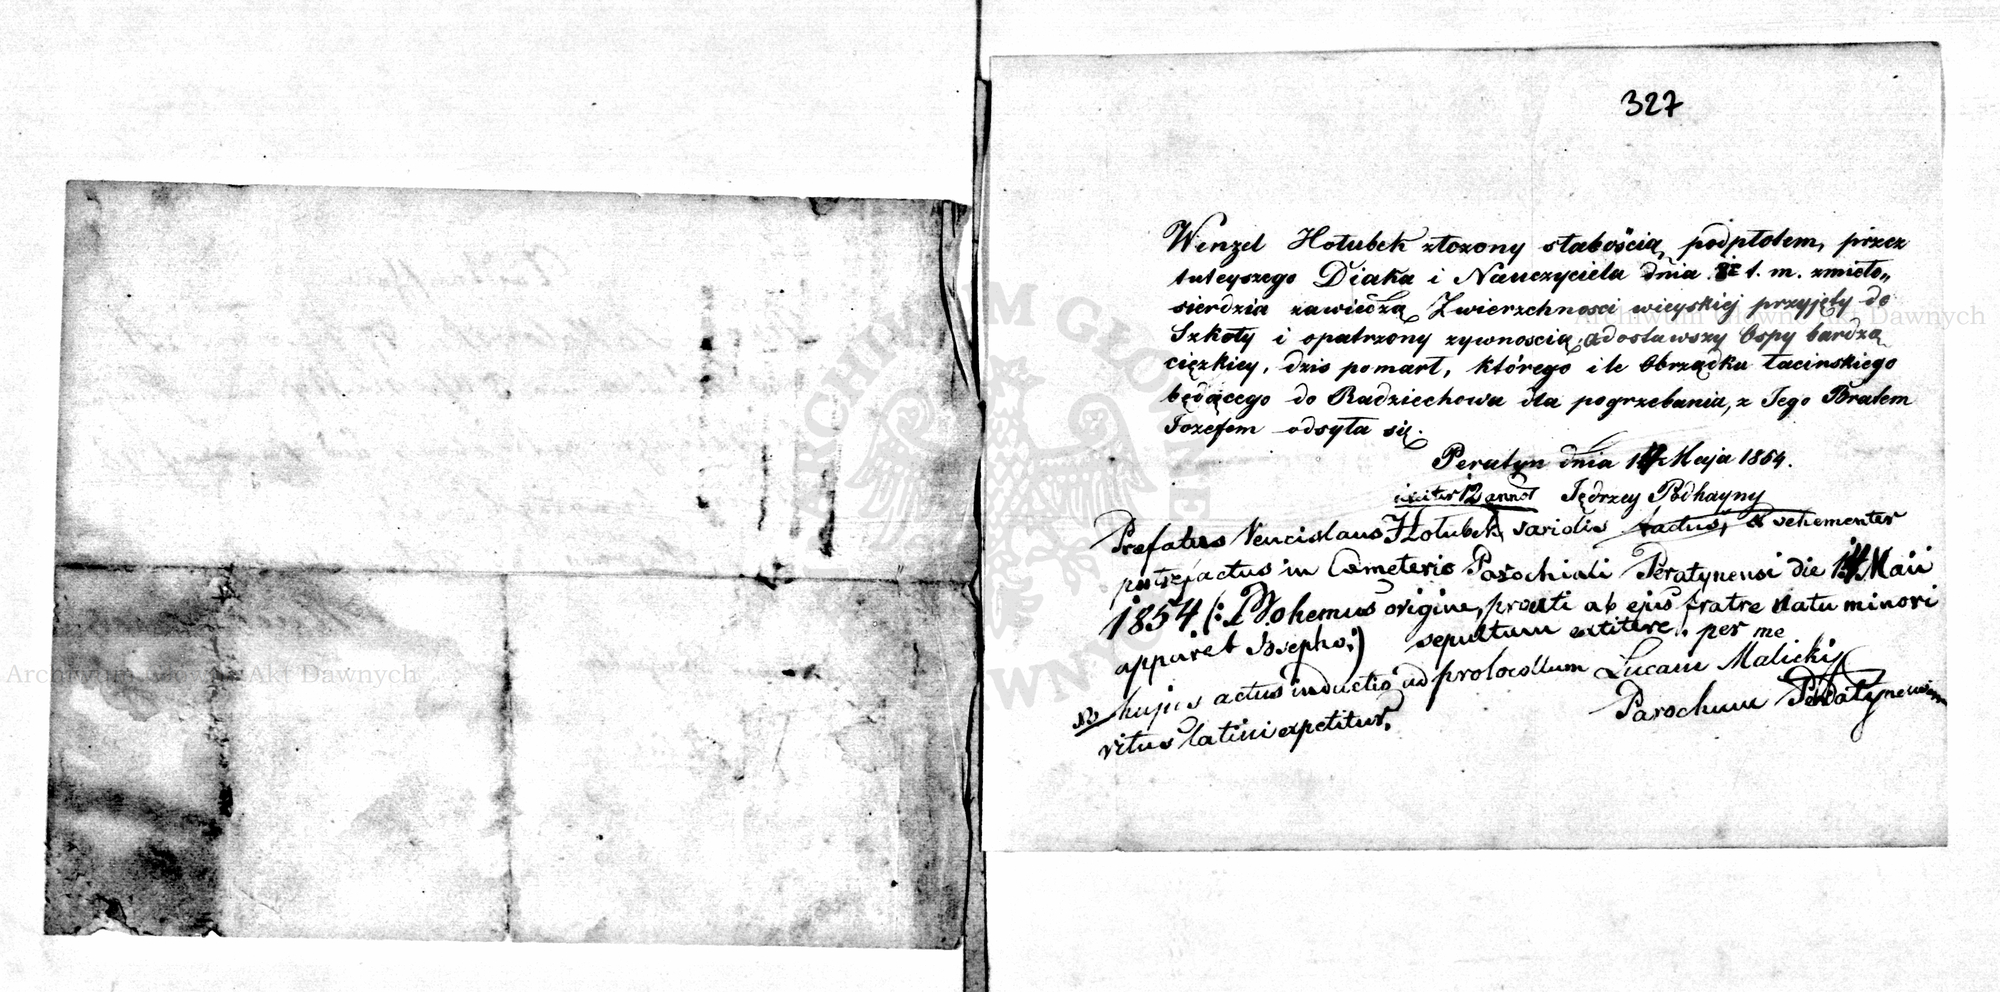 327
Wenzel Hołubek złożony słabością, podpłotem, przez
tuteyszego Diaka i Nauczyciela dnia t. m. zmiło„
sierdzia zawiedzą Zwierzchnosci wieyskiej przyjęty do
Szkoły i opatrzony zywnoscią, adostawszy Ospy bardzo
cięzkiey, dzis pomarł, którego ile Obrządku łacinskiego
będącego do Radziechowa dla pogrzebania, z Jego Bratem
Jozefem odsyła się.
Peratyn dnia Maja 1854.
12 annos Jędrzey Podhayny
Prefatus Venceslaus Hołubek, & vehementer
putrefactus in Cemeterio Parochiali Peratynensi die 14 Maii
1854 (: Bohemus origine, prouti ab ejus fratre natu minori
apparet Josepho :) sepultum extitere. per me
Lucam Malicki
NB hujus actus inductio ad protocollum
Parochum Peratynensem
ritus latini expetitur.
Archiwum Główne Akt Dawnych
Archiwum Główne Akt Dawnych
ARCHIWUM GŁÓWNE AKT DAWNYCH